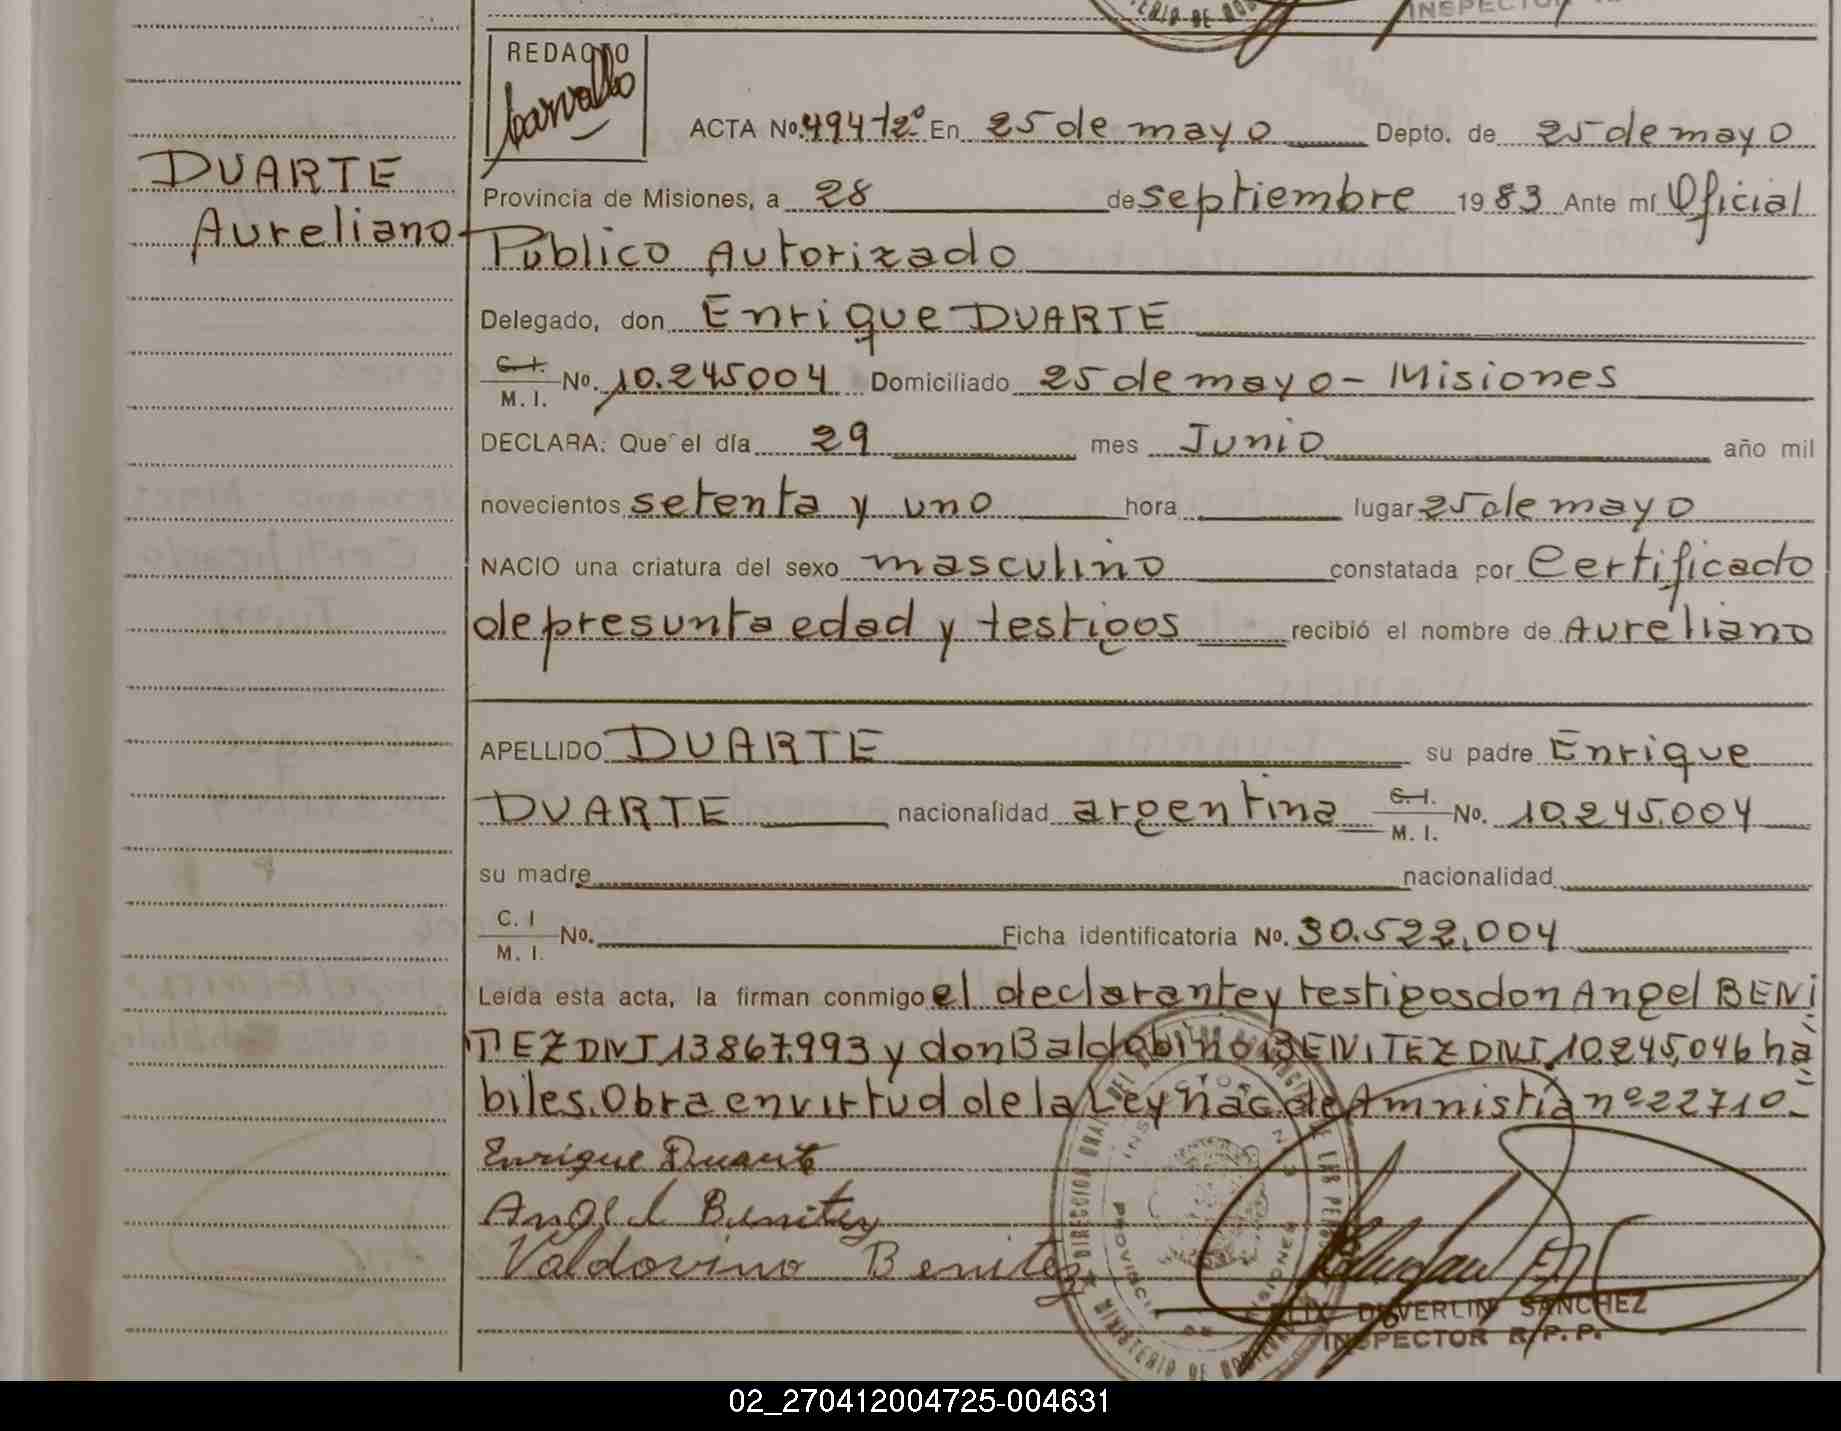 INSPECTOR
REDACTO
Carvallo
ACTA No. 494 T2º En 25 de mayo Depto. de 25 de mayo
DUARTE
Aureliano
Provincia de Misiones, a 28 de septiembre 19 83 Ante mí Oficial
Publico Autorizado
Delegado, don Enrique DUARTE
C.I. M.I. No. 10.245004 Domiciliado 25 de mayo - Misiones
DECLARA: Que el día 29 mes Junio año mil
novecientos setenta y uno hora lugar 25 de mayo
NACIO una criatura del sexo masculino constatada por Certificado
de presunta edad y testigos recibió el nombre de Aureliano
APELLIDO DUARTE su padre Enrique
DUARTE nacionalidad argentina C.I. M.I. No. 10.245.004
su madre nacionalidad
C.I M.I. No. Ficha identificatoria No. 30.522.004
Leída esta acta, la firman conmigo el declarante y testigos don Angel BENI
TEZ DNI 13867.993 y don Baldobino BENITEZ DNI 10.245.046 há
biles. Obra en virtud de la Ley Nac. de Amnistía nº 22710-
Enrique Duarte
Angel Benitez
Valdovino Benitez
DUVERLIN SANCHEZ
INSPECTOR R.P.P.
02_270412004725-004631